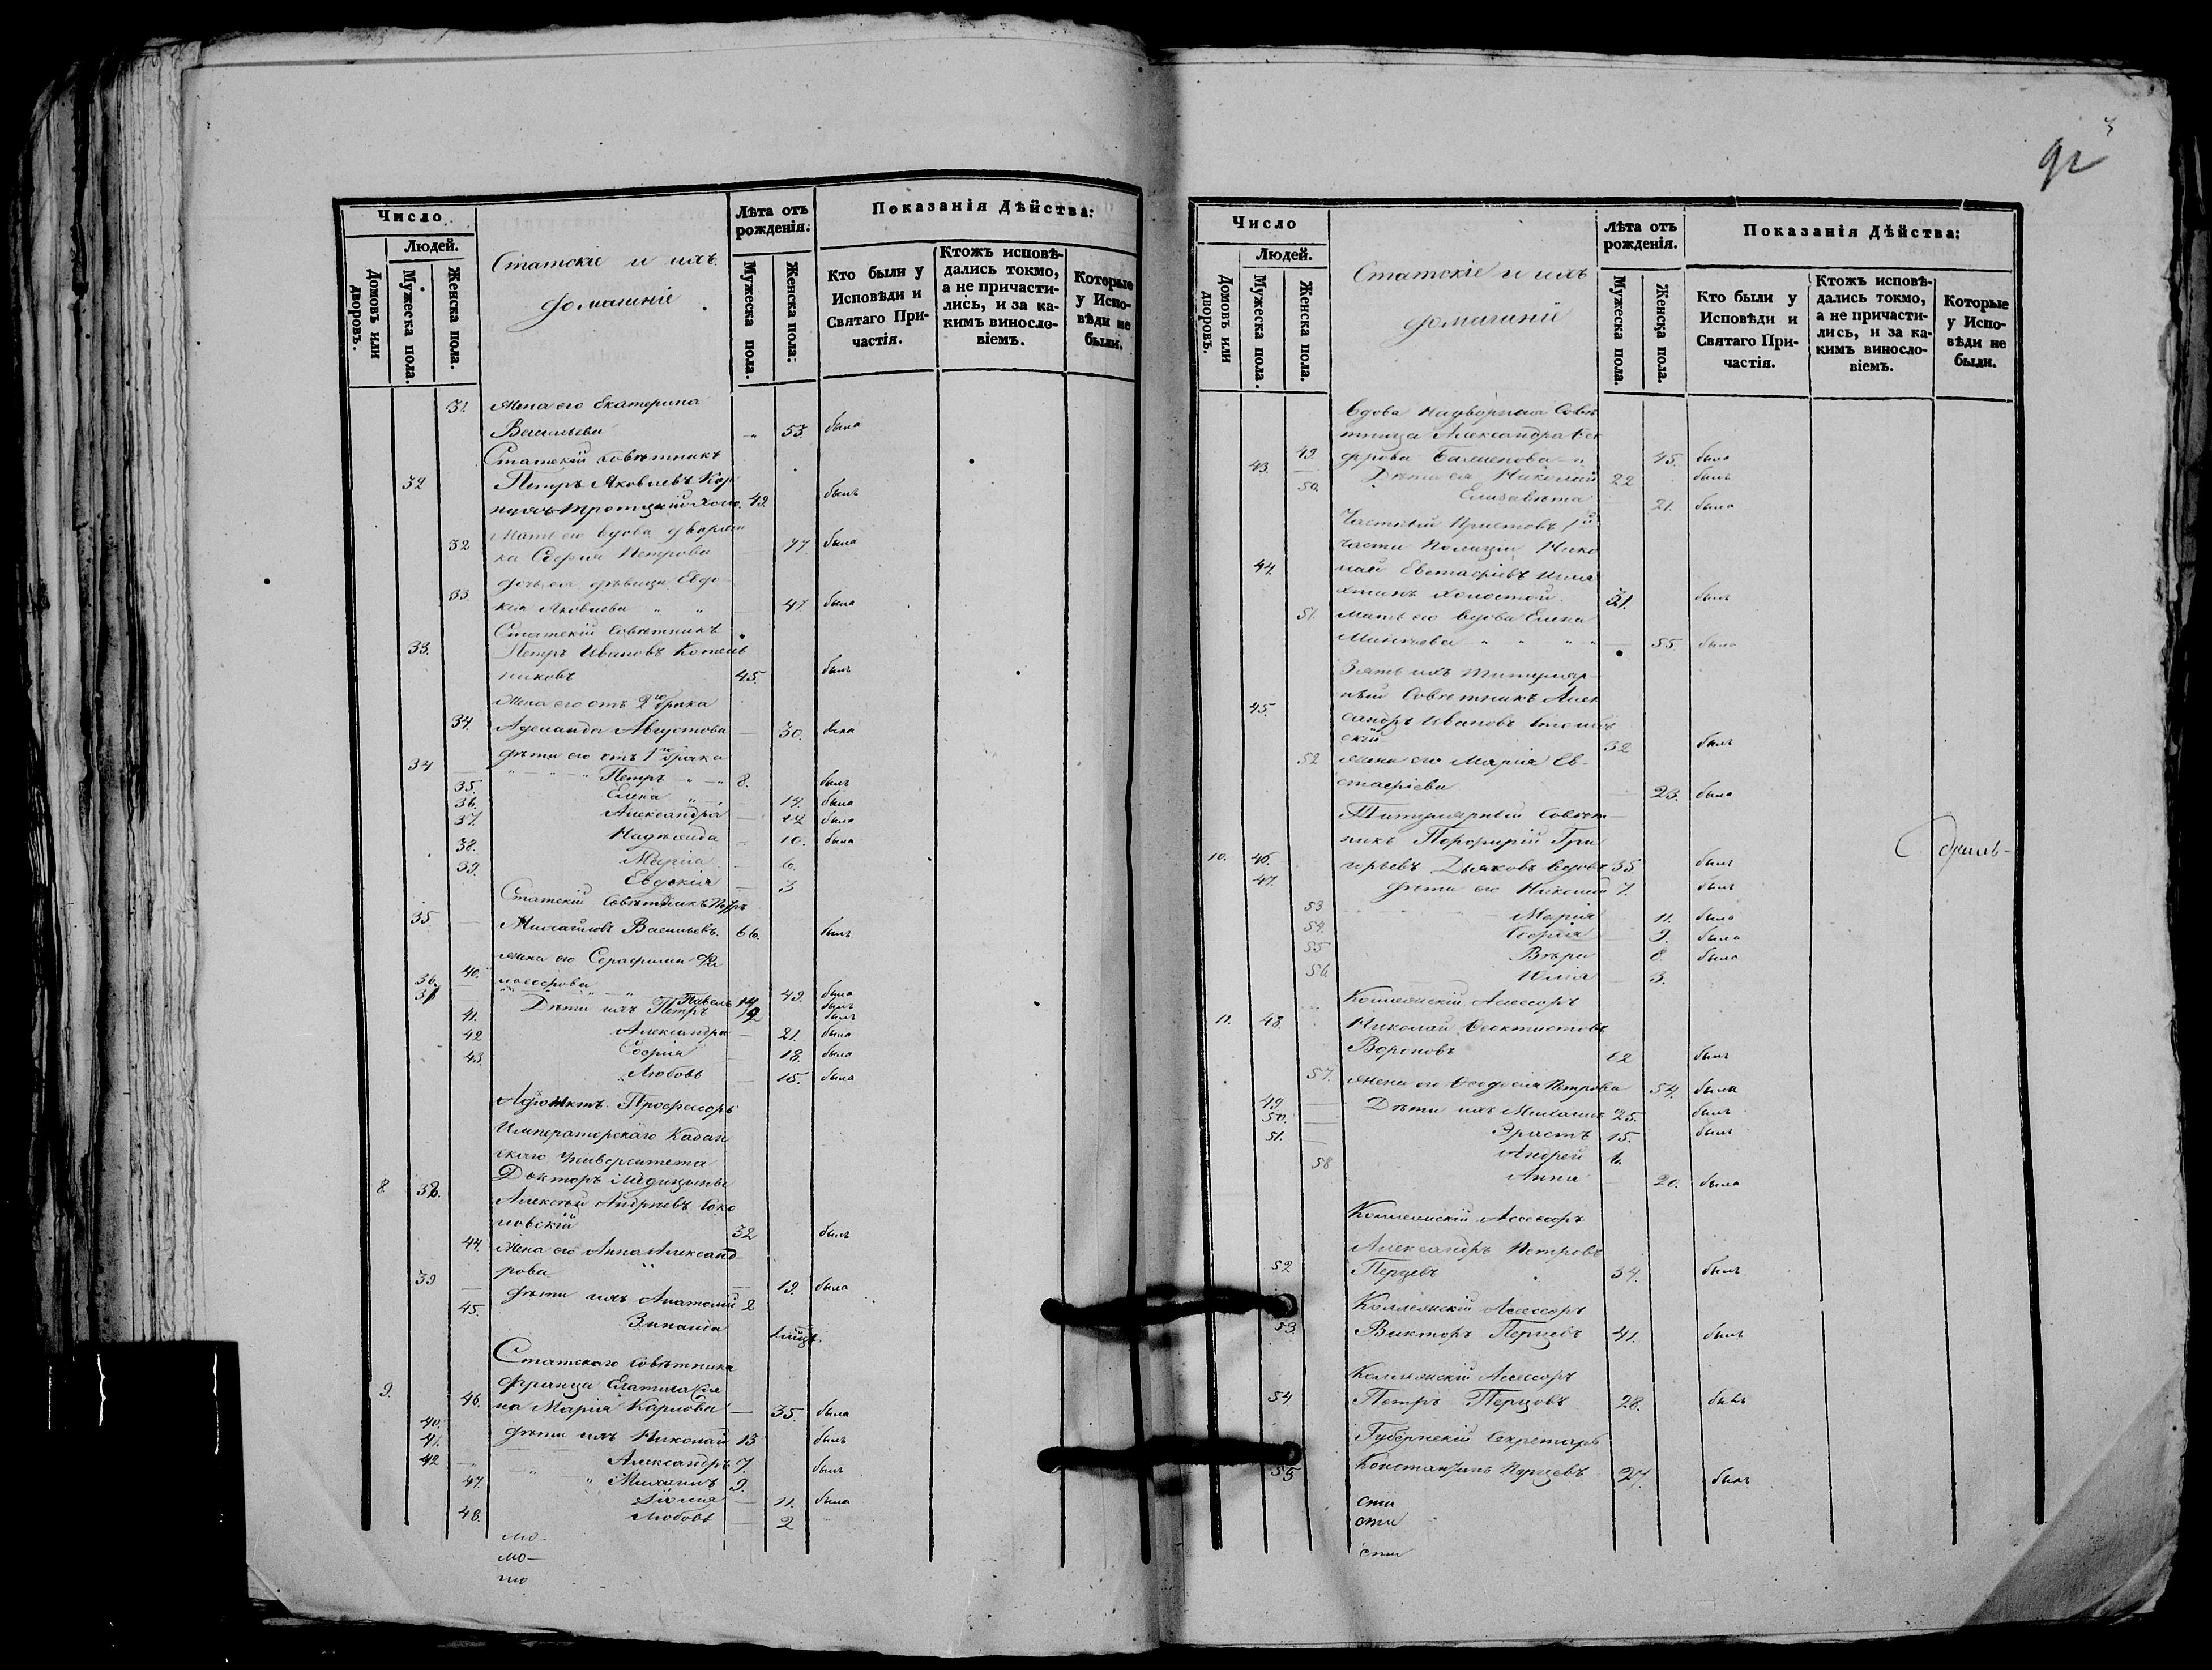 Число
Людей.
Домовъ или дворовъ.
Мужеска пола.
Женска пола.
Статскіе и ихъ
домашніе
Лѣта отъ рожденія.
Мужеска пола.
Женска пола.
Показанія Дѣйства:
Кто были у Исповѣди и Святаго Причастія.
Ктожъ исповѣдались токмо, а не причастились, и за какимъ винословіемъ.
Которые у Исповѣди не были.
31. Жена его Екатерина
Васильева 53. была
Статскій Совѣтникъ
32 Петръ Яковлевъ Кор
холо. 49. былъ
Мать его вдова дворян
32 ка Софья Петрова 77 была
дочь ея дѣвица Евдо
33. кія Яковлева 47 была
Статскій Совѣтникъ
33. Петръ Ивановъ Котель
никовъ 45. былъ
Жена его отъ 2го брака
34. Аделаида Августова 30. была
дѣти его отъ 1го брака
34 Петръ 8. былъ
35. Елена 14. была
36. Александра 12 была
37. Надежда 10. была
38. Марія 6.
39. Евдокія 3
Статскій Совѣтникъ Петръ
35. Михайловъ Васильевъ. 66. былъ
жена его Серафима Ал
40. 49. была
36. Павелъ 14 былъ
37 Дѣти ихъ Петръ 12 былъ
41. Александра 21. была
42 Софія 18. была
43. Любовь 15. была
Адъюнктъ Профессоръ
Императорскаго Казан
скаго Университета
Докторъ Медицины
8. 38. Алексѣй Андреевъ Соко
ловскій 32 былъ
44. Жена его Анна Александ-
рова 19. была
39 дѣти ихъ Анатолій 2
45. Зинаида
Статскаго Совѣтника
Франца
9. 46. на Марія Карлова 35. была
40. дѣти ихъ Николай 13 былъ
41. Александръ 7. былъ
42 Михаилъ 9.
47. 11. была
48. Любовь 2
мо-
мо-
мо
92
Число
Людей.
Домовъ или дворовъ.
Мужеска пола.
Женска пола.
Статскіе и ихъ
домашніи
Лѣта отъ рожденія.
Мужеска пола.
Женска пола.
Показанія Дѣйства:
Кто были у Исповѣди и Святаго Причастія.
Ктожъ исповѣдались токмо, а не причастились, и за какимъ винословіемъ.
Которые у Исповѣди не были.
Вдова Надворная Совѣ
тница Александра Ѳео
49. дорова 45. была
43. Дѣти ея Николай 22 былъ
50. Елизавета 21. была
Частный Приставъ 1й
части Полиціи Нико
44. лай Евстафіевъ
холостой. 31. былъ
51. Мать его вдова Елена
55. была
Зять ихъ Титуляр-
ный Совѣтникъ Алек
45. сандръ Ивановъ
скій 32 былъ
52 жена его Марія Ев-
стафіева 23. была
Титулярный Совѣт-
никъ Порфирій Гри
10. 46. горьевъ Дьяковъ вдовъ 35 былъ
47. дѣти его Николай 7. былъ
53 Марія 11. была
54. Софія 9. была
55 Вѣра 8. была
56 Юлія 3.
Коллежскій Ассесоръ
11. 48. Николай Ѳеоктистовъ
62 былъ
57. жена его Ѳеодосія Петрова 54. была
49 Дѣти ихъ Михаилъ 25. былъ
50. Эрастъ 15. былъ
51. Андрей
58 Анна 20. была
Коллежскій Ассесоръ
Александръ Петровъ
52 Перцевъ 34. былъ
Коллежскій Ассесоръ
53. Викторъ Перцевъ 41. былъ
Коллежскій Ассесоръ
54 Петръ Перцовъ 28. былъ
Губернскій Секретарь
55 Константинъ Перцевъ 27. былъ
сти
сти
сти